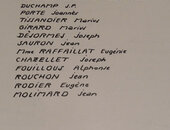 DUCHAMP J.F.
PORTE Joannès
TISSANDIER Marius
GIRARD Marius
DÉSORMES Joseph
SAURON Jean
Mme RAFFAILLAT Eugénie
CHABELLET Joseph
FOUILLOUS Alphonse
ROUCHON Jean
RODIER Eugène
MOLIMARD Jean